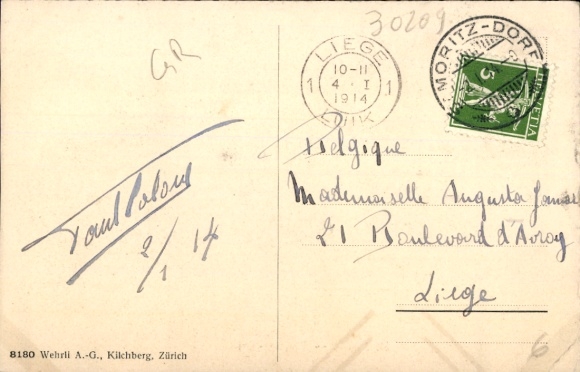 30209
GR
LIEGE
10-11
4 - I
1914
LUIK
1 1
MORITZ-DORF
5
HELVETIA
Belgique
Mademoiselle Augusta
21 Boulevard d'Avroy
Liege
2/1 14
6
8180 Wehrli A.-G., Kilchberg, Zürich